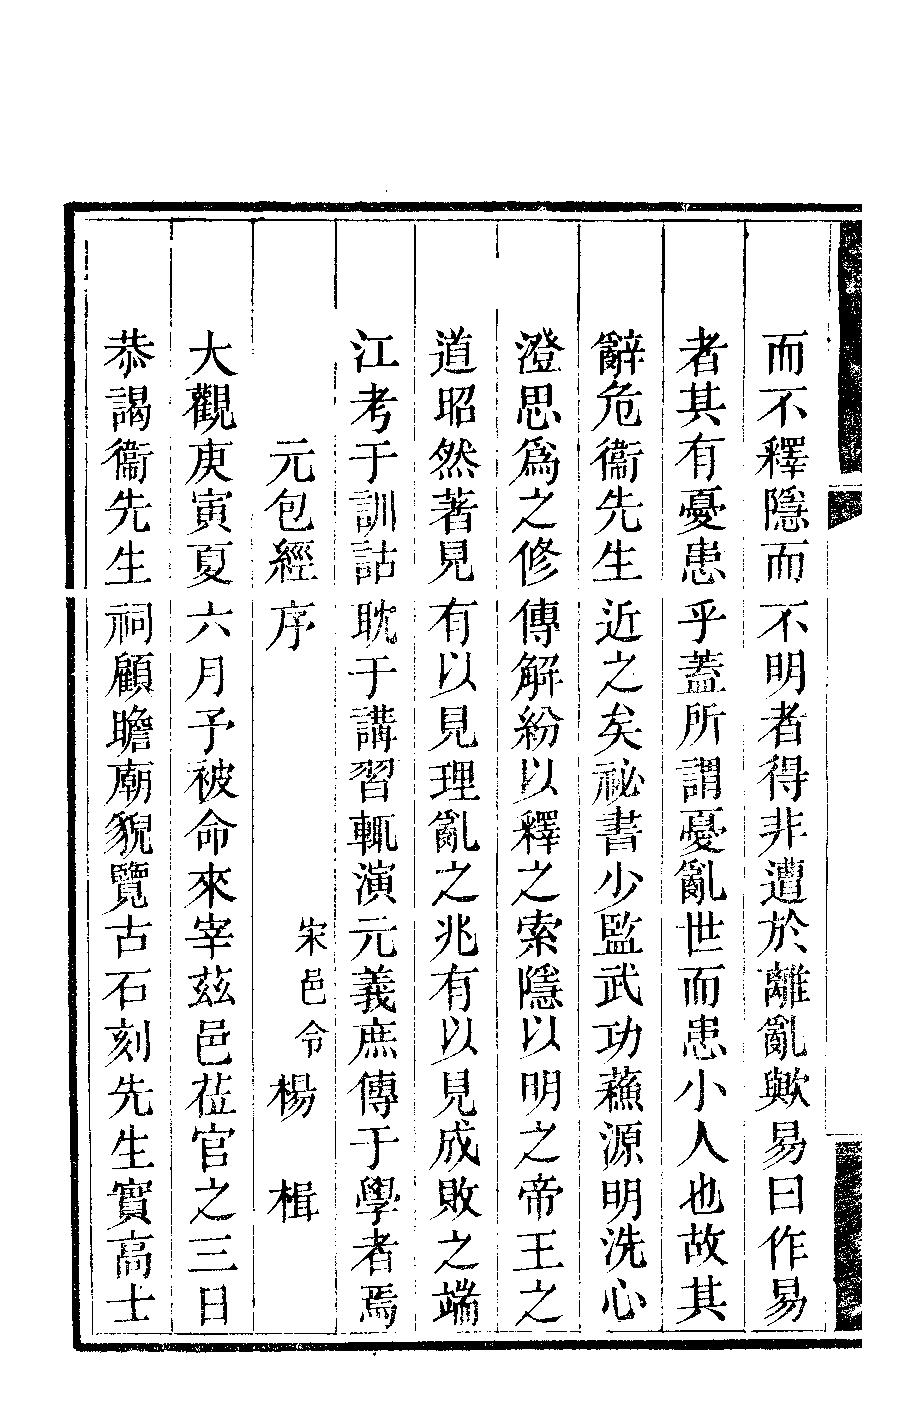 而不釋隱而不明者得非遭於離亂歟易曰作易
者其有憂患乎蓋所謂憂亂世而患小人也故其
辭危衞先生近之矣祕書少監武功蘓源明洗心
澄思爲之修傳解紛以釋之索隱以明之帝王之
道昭然著見有以見理亂之兆有以見成敗之端
江考于訓詁耽于講習輒演元義庶傳于學者焉
元包經序　宋邑令楊　楫
大觀庚寅夏六月予被命來宰茲邑莅官之三日
恭謁衞先生祠顧瞻廟貌覽古石刻先生實高士